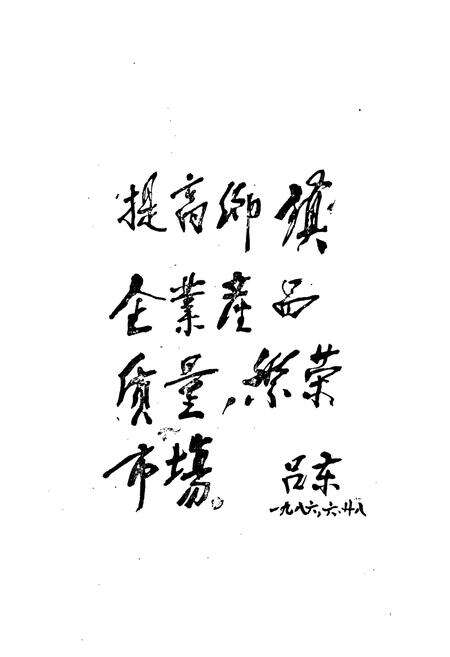 提高鄉鎮
企業產品
质量,繁荣
市場。
吕东
一九八六,六.廿八